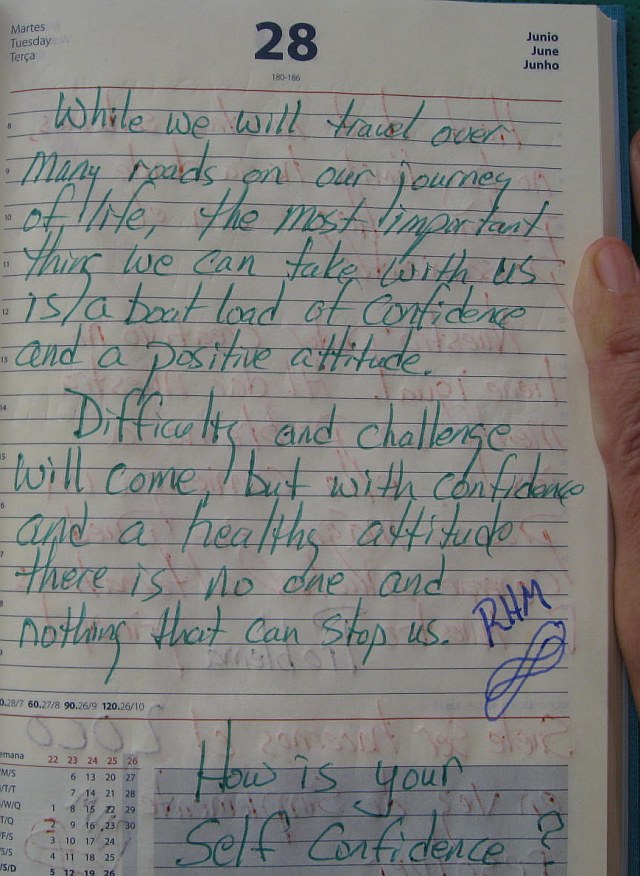 Martes
Tuesday
Terça
28
Junio
June
Junho
180-186
While we will travel over
many roads on our journey
of life, the most important
thing we can take with us
is a boat load of confidence
and a positive attitude.
Difficulty and challenge
will come, but with confidence
and a healthy attitude
there is no one and
nothing that can stop us.
RHM
8
9
10
11
12
13
14
.28/7 60.27/8 90.26/9 120.26/10
emana 22 23 24 25 26
/M/S 6 13 20 27
/T/T 7 14 21 28
/W/Q 1 8 15 22 29
/T/Q 2 9 16 23 30
/F/S 3 10 17 24
/S/S 4 11 18 25
/S/D 5 12 19 26
How is your
Self Confidence?